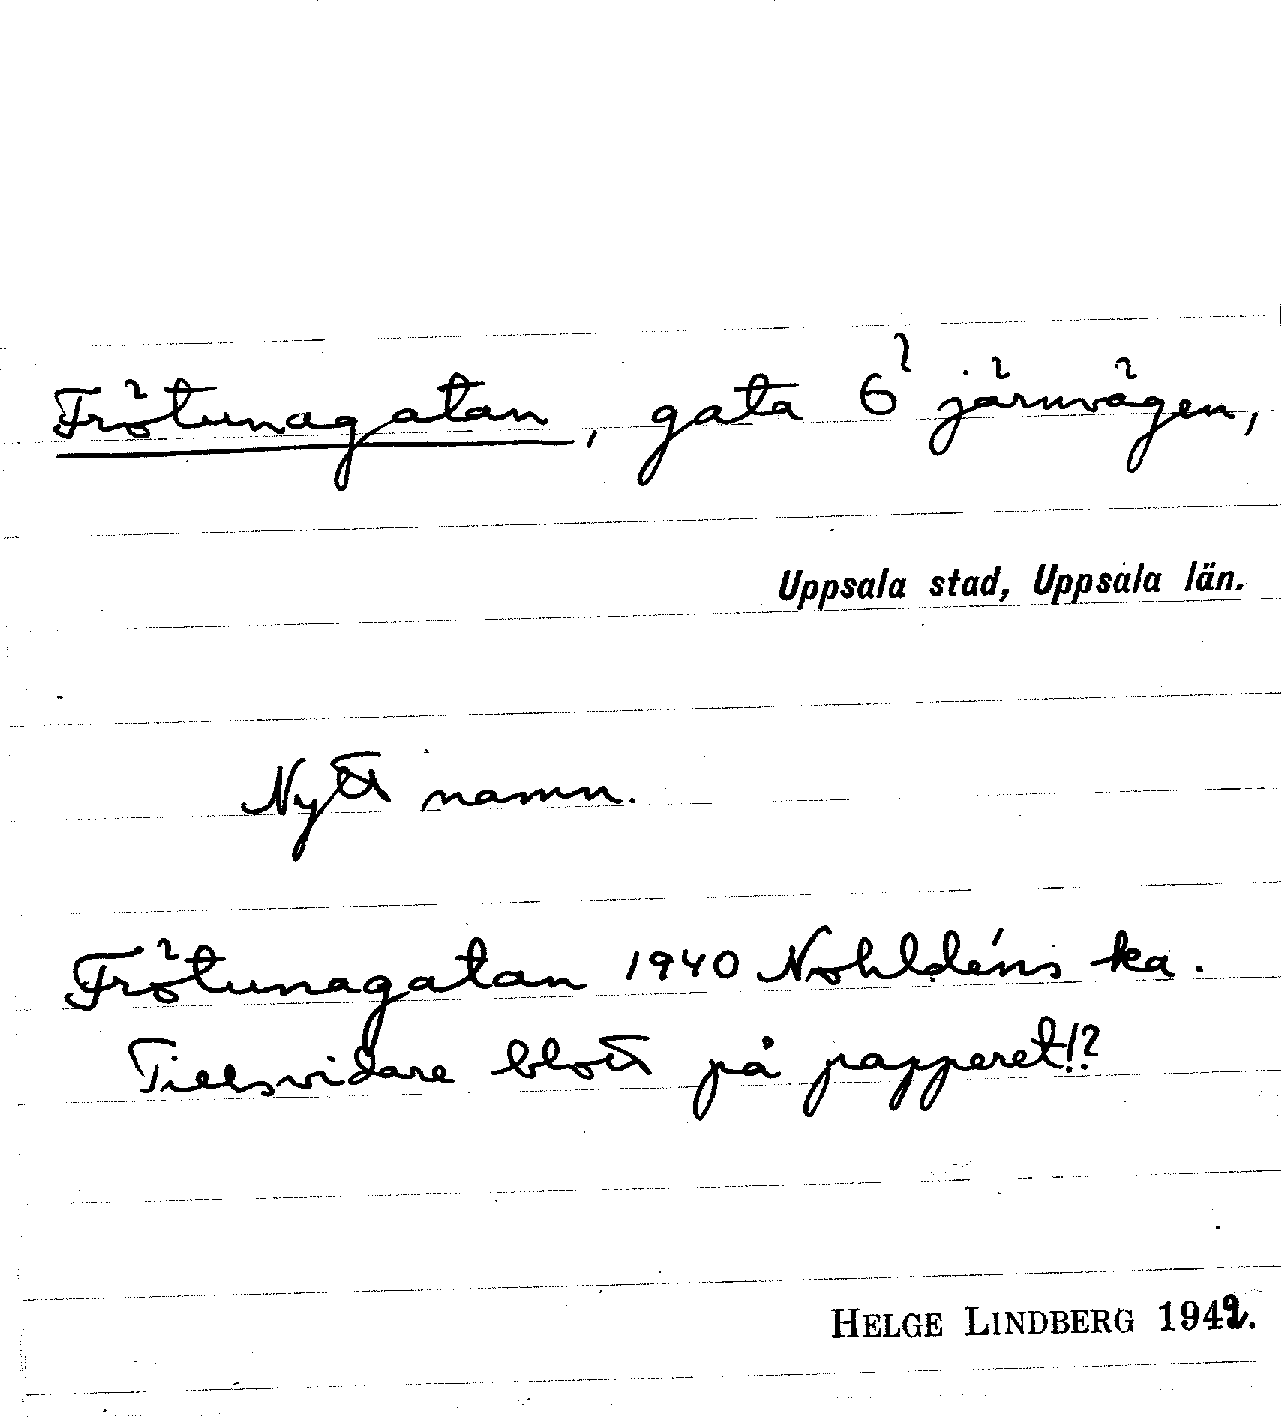 Frötunagatan, gata ö järnvägen,
Uppsala stad, Uppsala län.
Nytt namn.
Frötunagatan 1940 Nohldéns ka.
Tillsvidare blott på papperet!?
HELGE LINDBERG 1942.